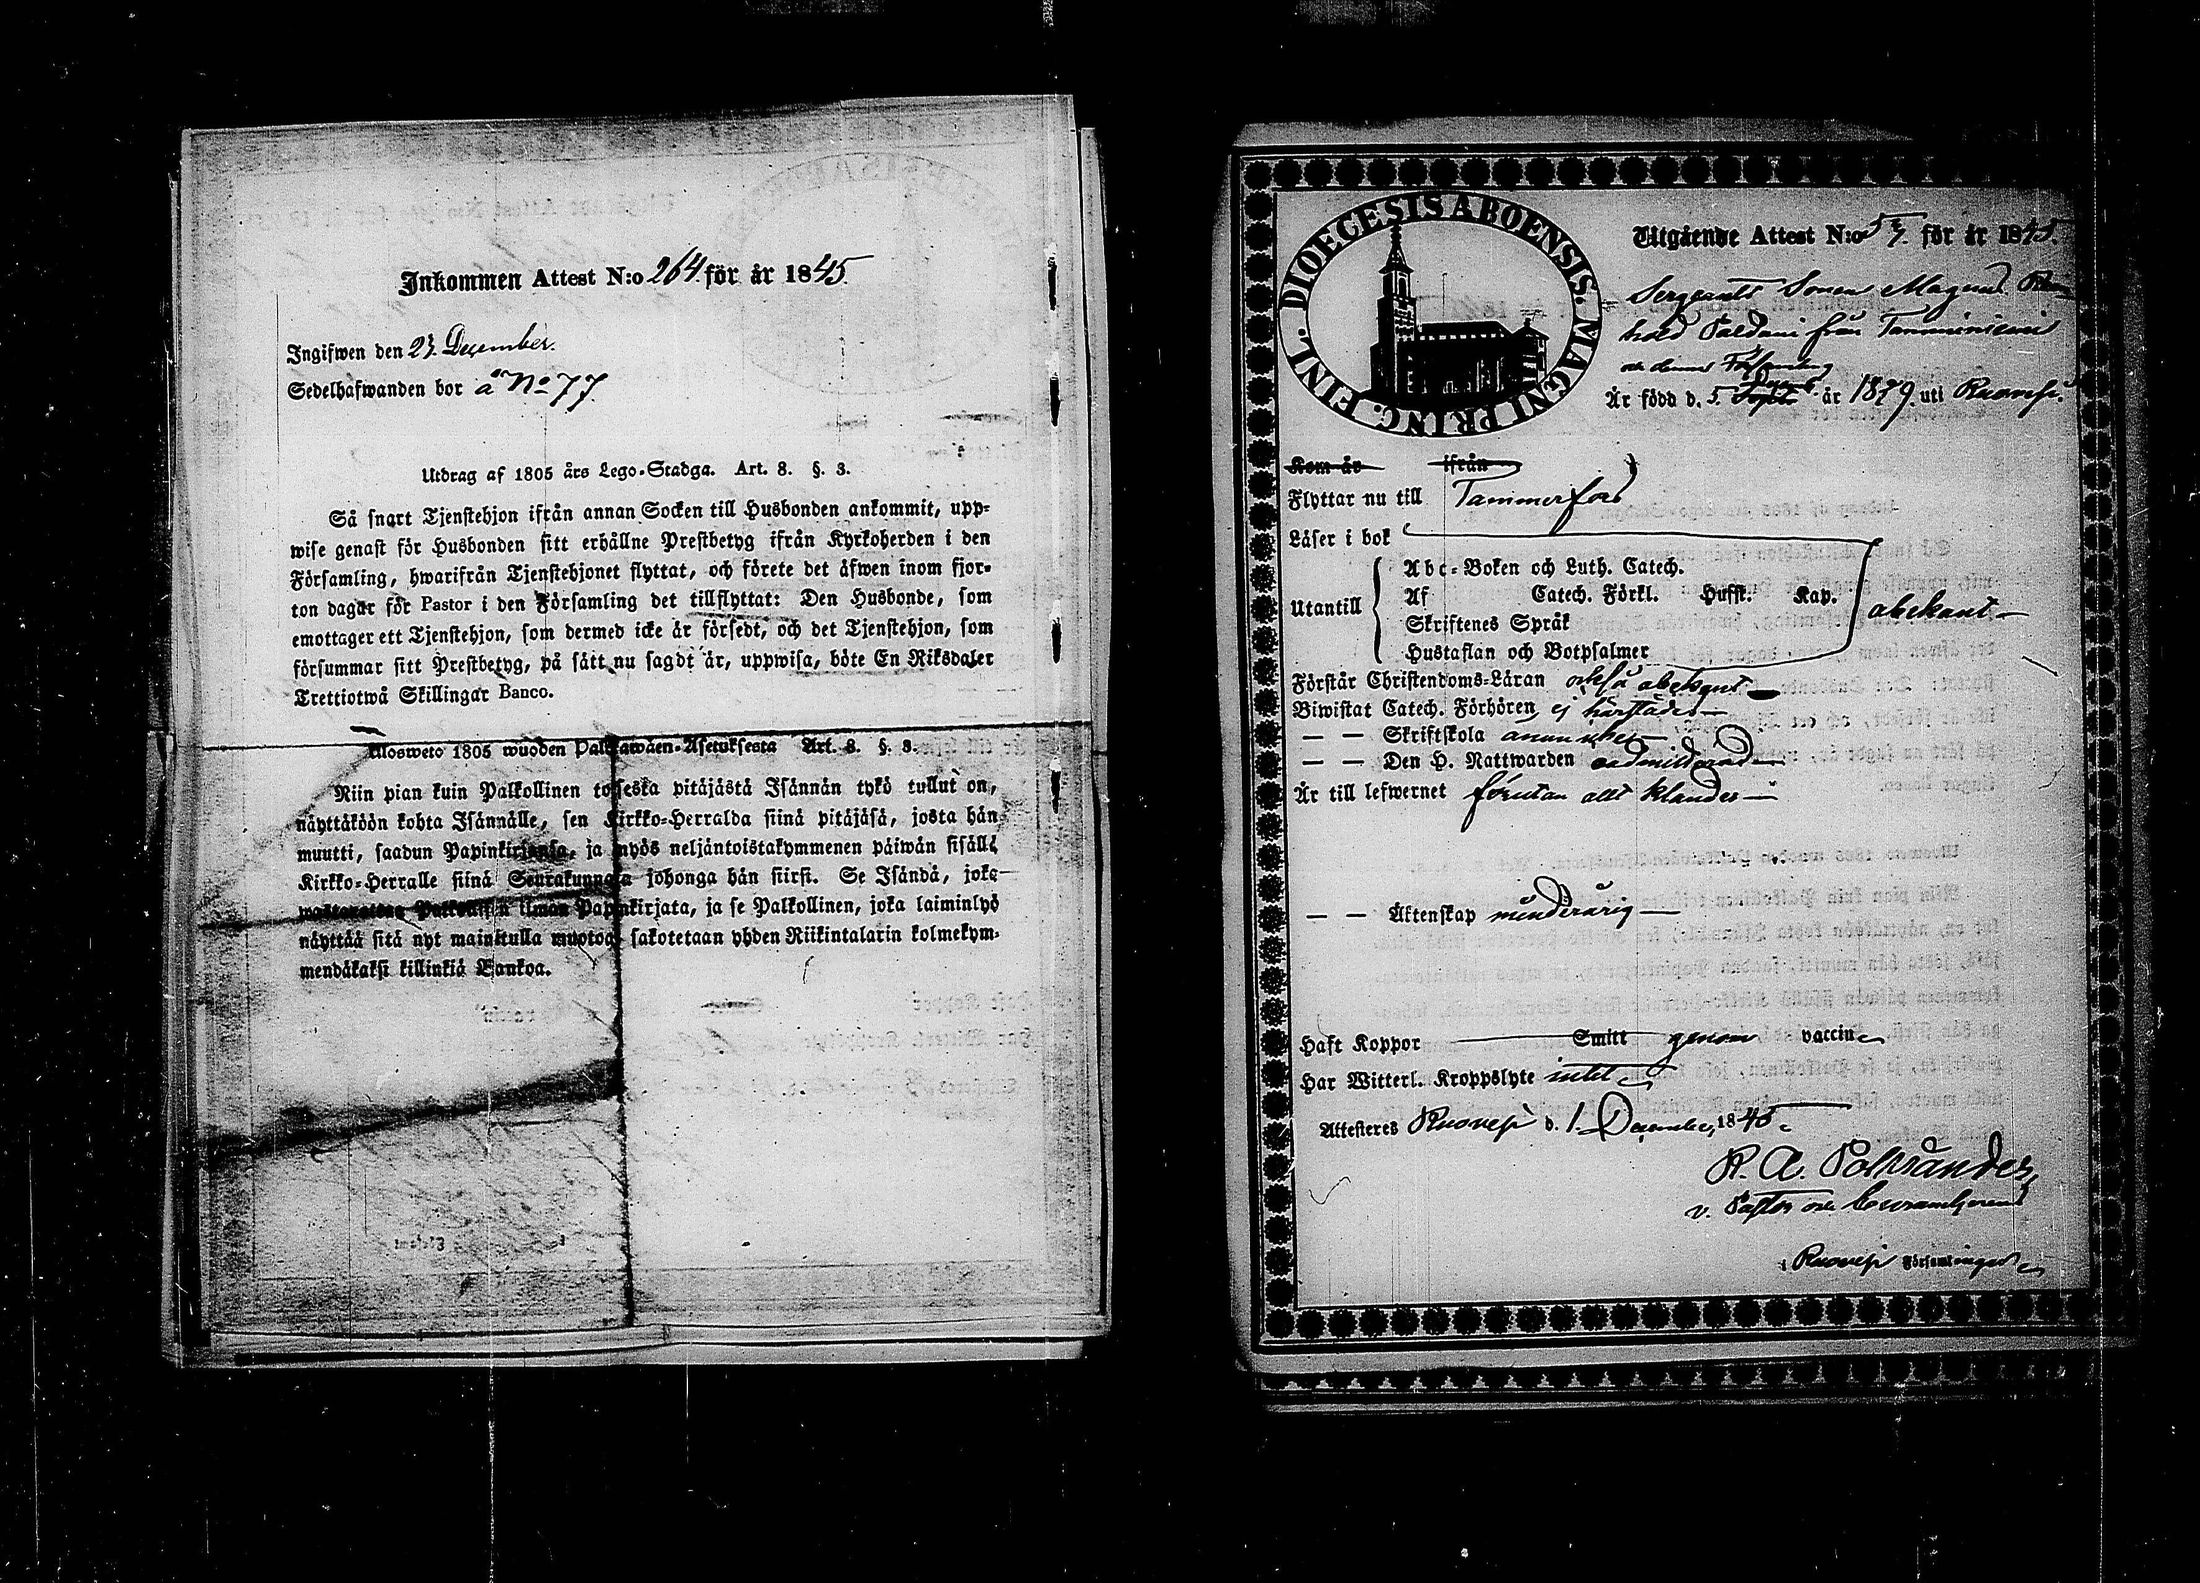 Inkommen Attest N:o 264. för år 1845.
Ingifwen den 23. December.
Sedelhafwanden bor å No 77.
Utdrag af 1805 års Lego-Stadga. Art. 8. §. 3.
Så snart Tjenstehjon ifrån annan Socken till Husbonden ankommit, upp-
wise genast för Husbonden sitt erhållne Prestbetyg ifrån Kyrkoherden i den
Församling, hwarifrån Tjenstehjonet flyttat, och förete det äfwen inom fjor-
ton dagar för Pastor i den Församling det tillflyttat: Den Husbonde, som
emottager ett Tjenstehjon, som dermed icke är försedt, och det Tjenstehjon, som
försummar sitt Prestbetyg, på sätt nu sagdt är, uppwisa, böte En Riksdaler
Trettiotwå Skillingar Banco.
Ulosweto 1805 wuoden Palkawäen-Asetuksesta Art. 8. §. 3.
Niin pian kuin Palkollinen toisesta pitäjästä Isännän tykö tullut on,
näyttäköön kohta Isännälle, sen Kirkko-Herralda siinä pitäjäsä, josta hän
muutti, saadun Papinkirjansa, ja myös neljäntoistakymmenen päiwän sisällä
Kirkko-Herralle siinä Seurakunnasa johonga hän siirsi. Se Isändä, joka
wastaanottaa Palkollisen ilman Papinkirjata, ja se Palkollinen, joka laiminlyö
näyttää sitä nyt mainitulla muotoa, sakotetaan yhden Riikintalarin kolmekym-
mendäkaksi killinkiä Bankoa.
DIOECESIS ABOENSIS. MAGNI PRINC. FINL.
Utgående Attest N:o 57. för år 1845.
Sergeants Sonen Magnus Rein-
hold Paldani från Tamminiemi
och denna Församling
Är född d. 5. år 1829. uti Ruovesi.
Kom år ifrån
Flyttar nu till Tammerfors
Läser i bok
Abc-Boken och Luth. Catech.
Utantill Af Catech. Förkl. Hufst. Kap. obekant
Skriftenes Språk
Hustaflan och Botpsalmer
Förstår Christendoms-Läran också obekant
Biwistat Catech. Förhören ej härstädes
— — Skriftskola
— — Den H. Nattwarden oadmitterad
Är till lefwernet förutan allt klander
— — Äktenskap minderårig
Haft Koppor Smitt genom vaccin
Har Witterl. Kroppslyte intet
Attesteres Ruovesi d. 1. December 1845.
v. Pastor
i Ruovesi Församlingar